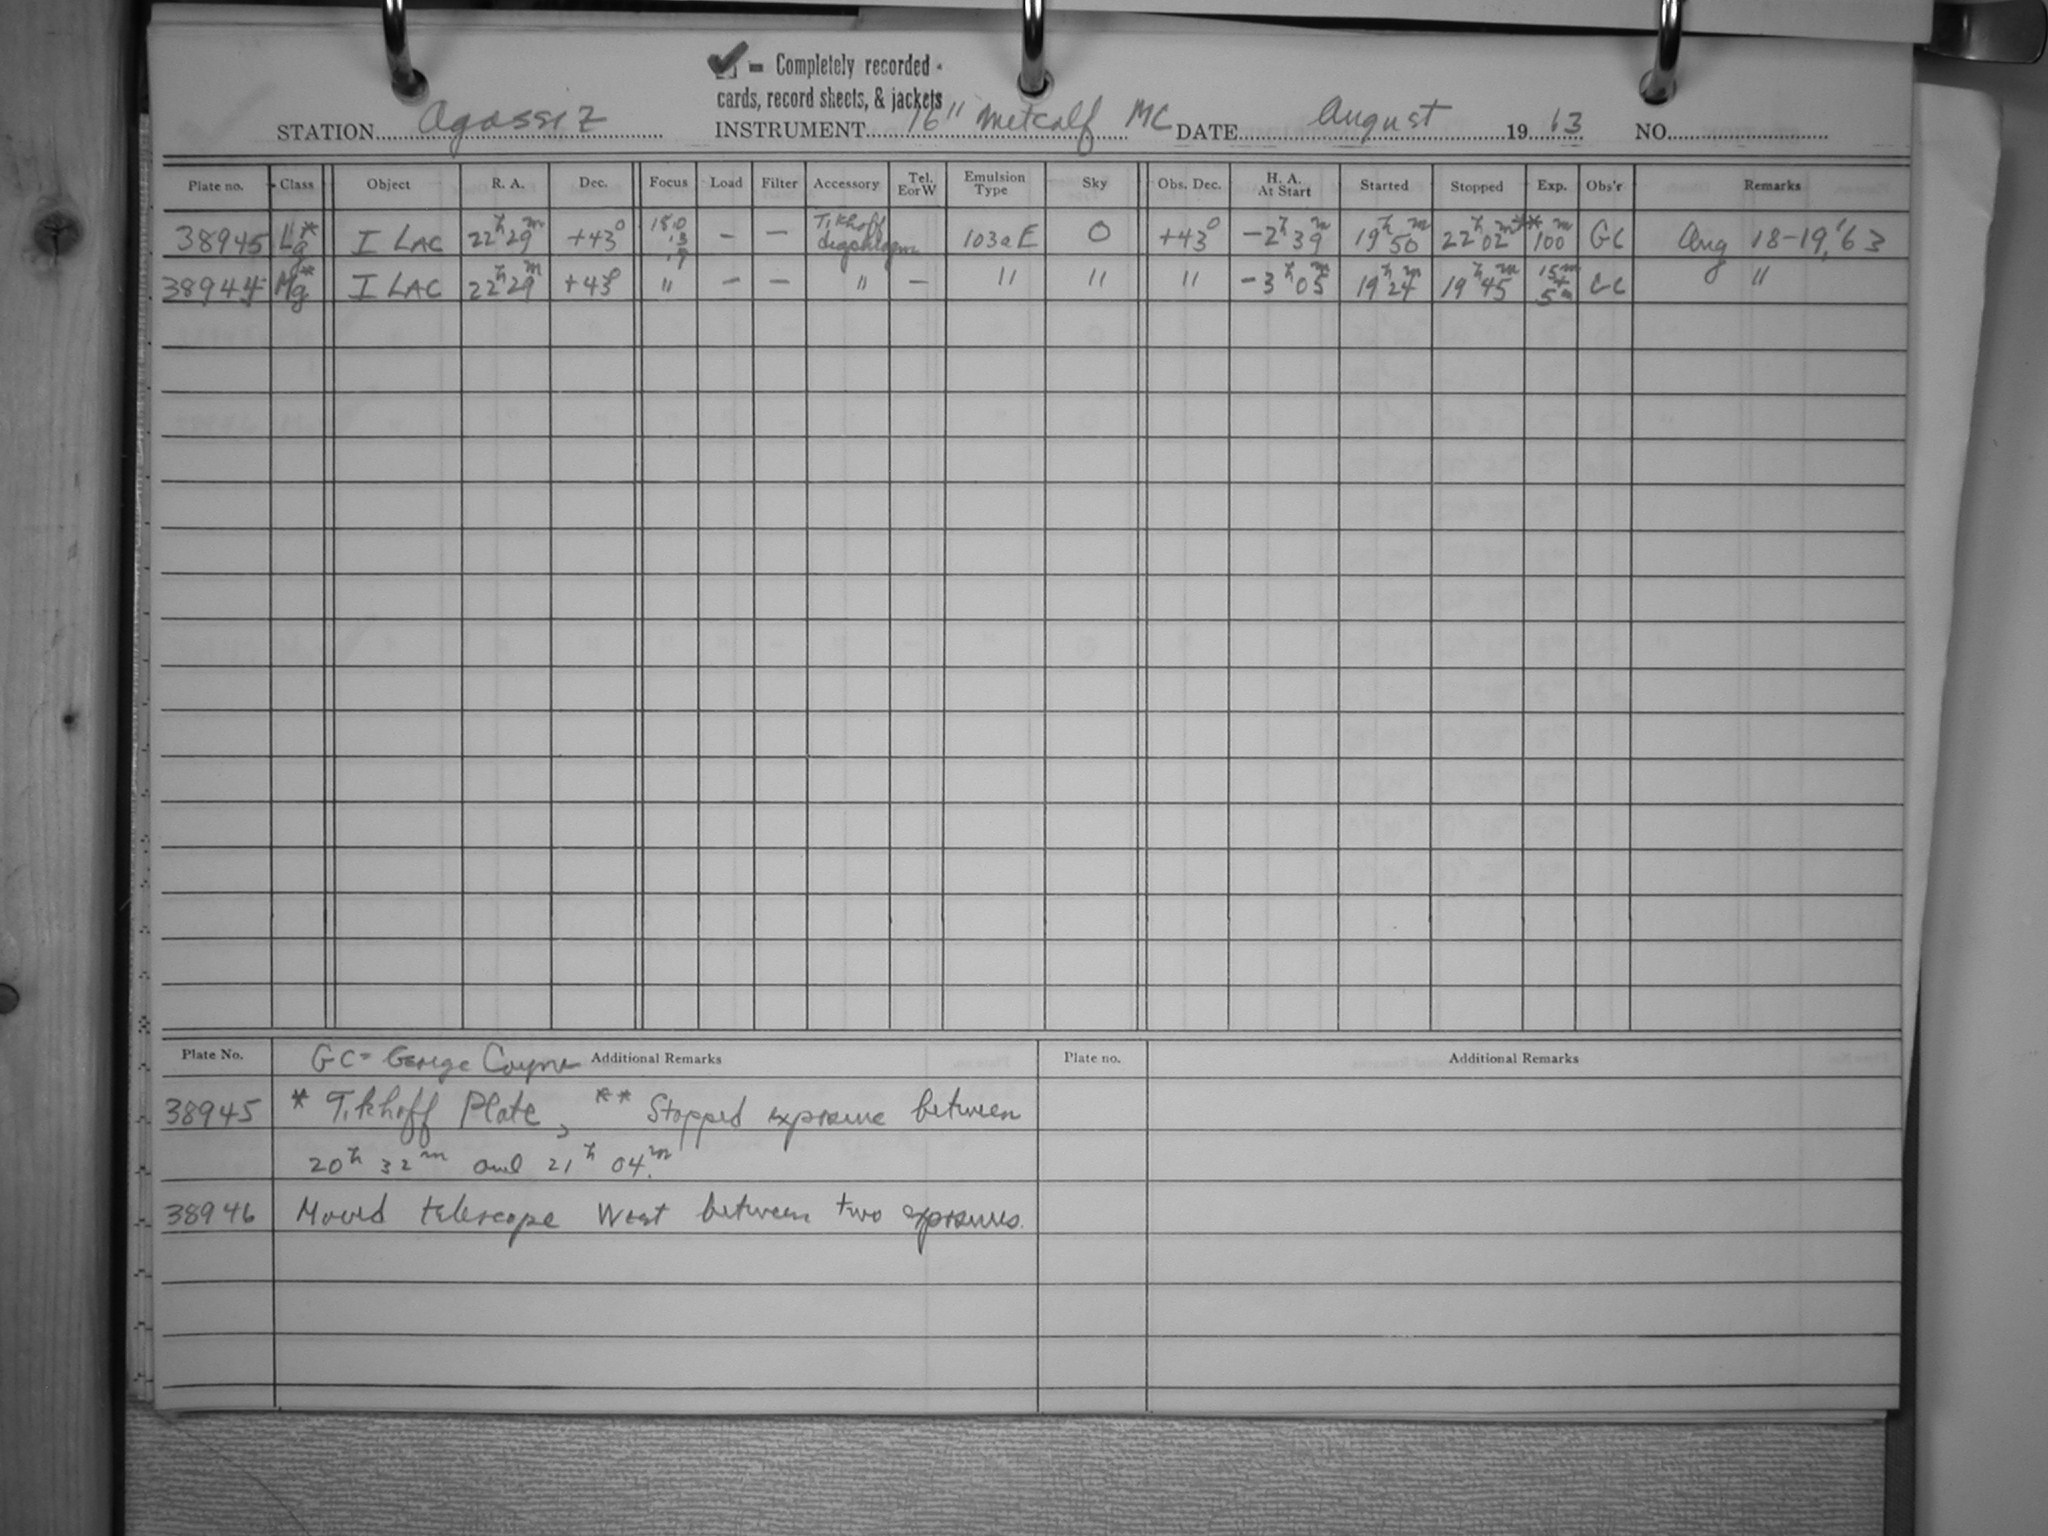 ✓ = Completely recorded -
cards, record sheets, & jackets
STATION Agassiz INSTRUMENT 16" Metcalf MC DATE August 1963 NO.
Plate no. Class Object R. A. Dec. Focus Load Filter Accessory Tel. E or W Emulsion Type Sky Obs. Dec. H. A. At Start Started Stopped Exp. Obs'r Remarks
38945 I LAC 22h 29m +43° 15.0 - - Tikhoff 103aE 0 +43° -2h 39m 19h 50m 22h 02m** 100m GC Aug 18-19, '63
38944 Mg* I LAC 22h 29m +43° " - - " - " " " -3h 05m 19h 24m 19h 45m 15m 5m GC "
Plate No. GC = George Coyne Additional Remarks Plate no. Additional Remarks
38945 * Tikhoff Plate, ** Stopped exposure between
20h 32m and 21h 04m.
38946 Moved telescope West between two exposures.